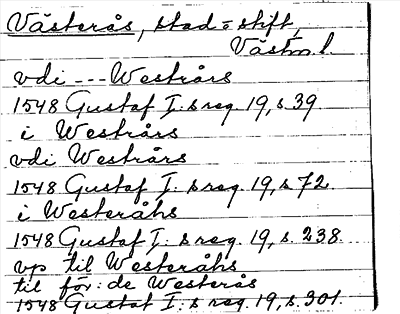 Västerås, stad = stift,
Västm.l.
vdi --- Westrårs
1548 Gustaf I:s reg. 19, s. 39
i Westrårs
vdi Westrårs
1548 Gustaf I:s reg. 19, s. 72.
i Westeråhs
1548 Gustaf I:s reg. 19, s. 238.
vp til Westeråhs
til för: de Westerås
1548 Gustaf I:s reg. 19, s. 301.